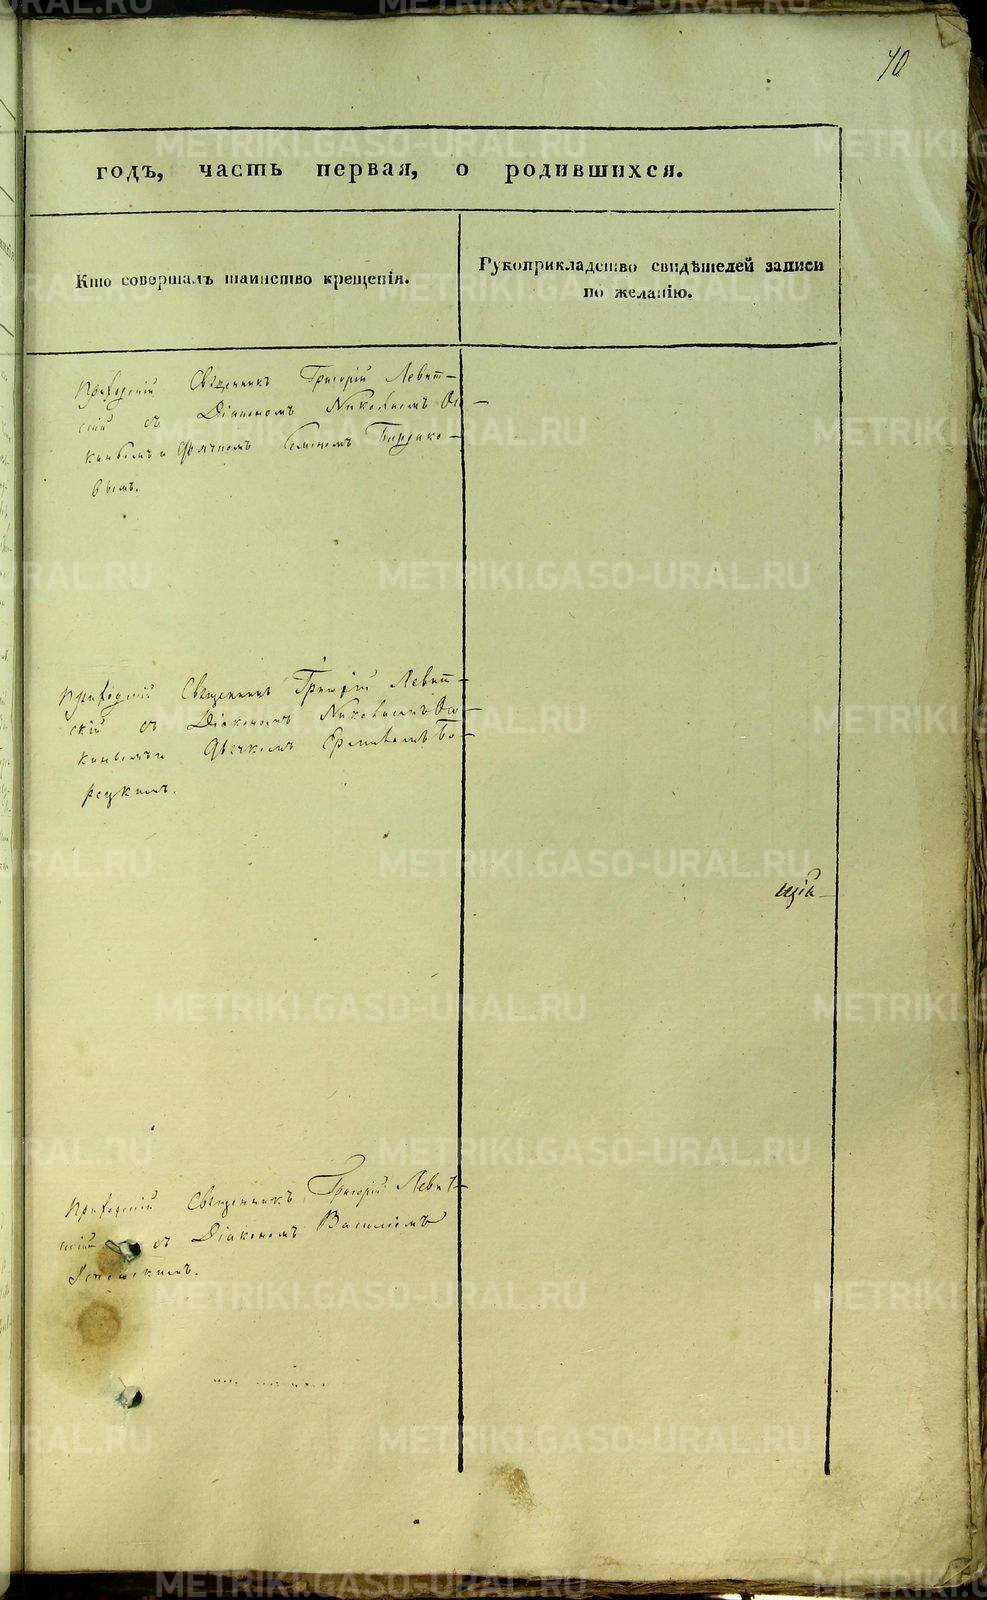 40
годъ, часть первая, о родившихся.
Кто совершалъ таинство крещенія.
Рукоприкладство свидѣтелей записи
по желанію.
Приходскій Священникъ Григорій Левит-
скій съ Діакономъ Николаемъ
и Дьячкомъ Семеномъ
вымъ.
Приходскій Священникъ Григорій Левит-
скій съ Діакономъ Николаемъ
Дьячкомъ
рецкимъ.
Приходскій Священникъ Григорій Левит-
скій съ Діакономъ Василіемъ
METRIKI.GASO-URAL.RU